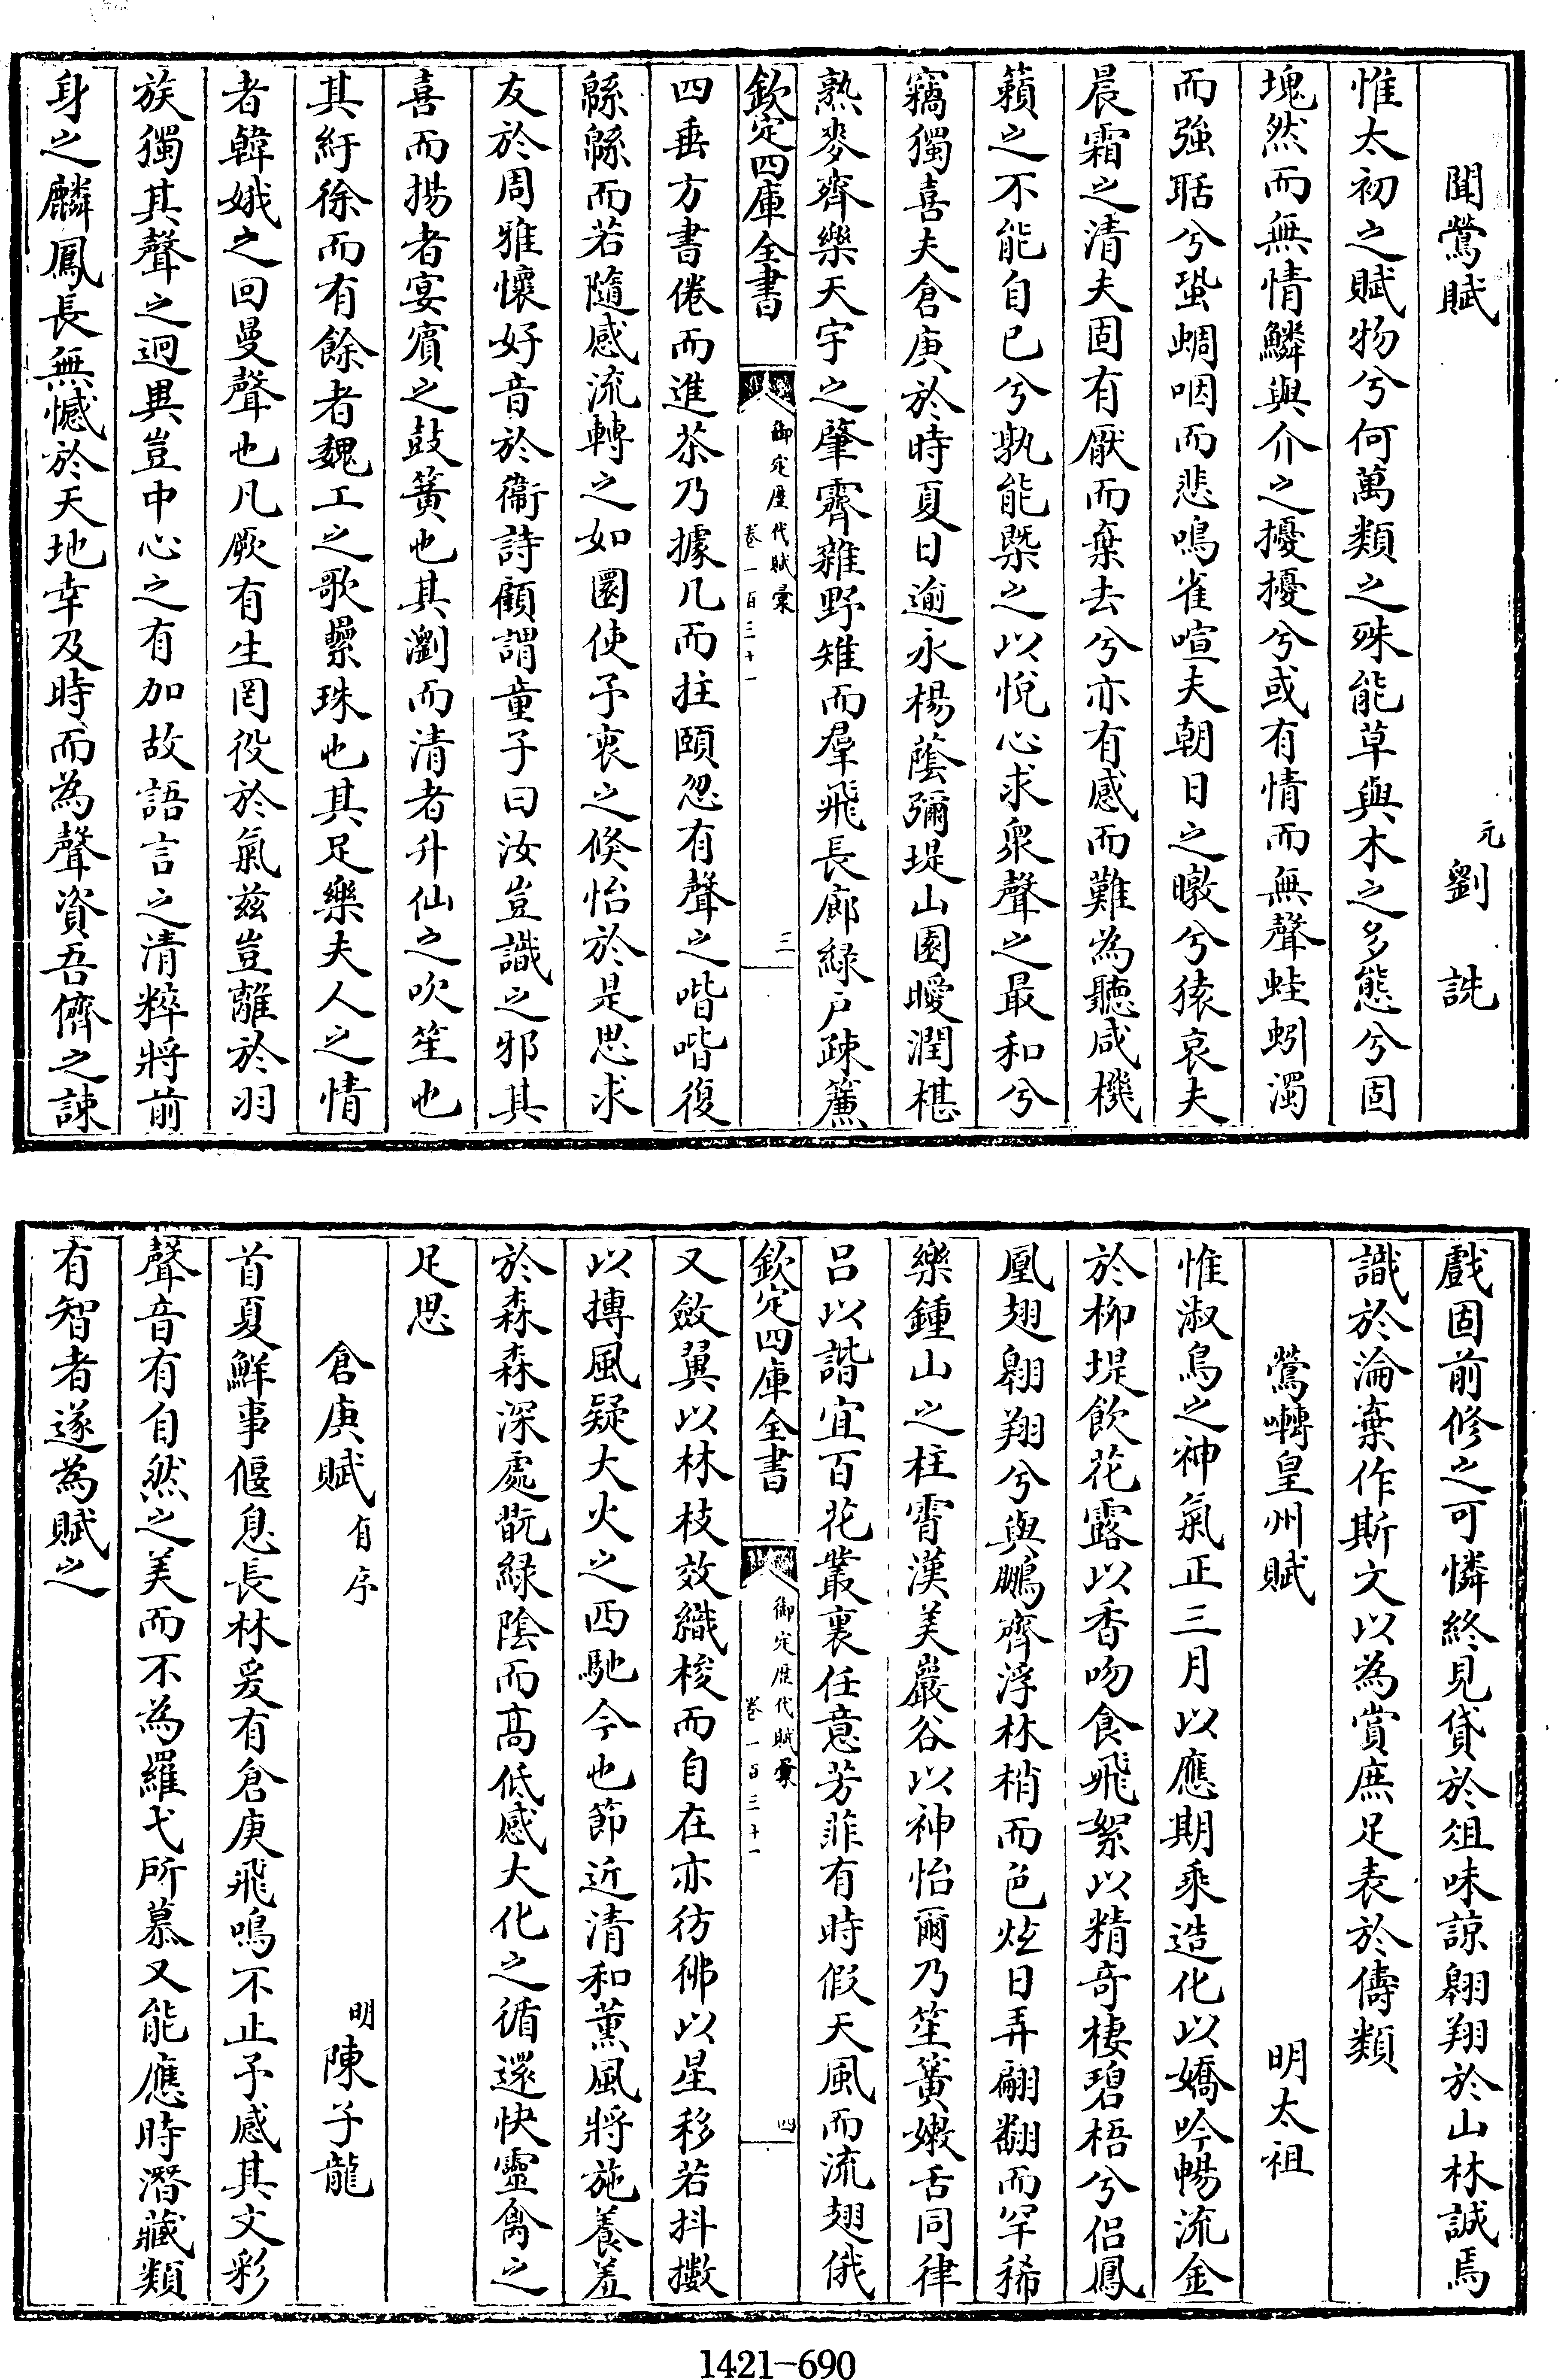 聞鶯賦　元劉詵
惟太初之賦物兮何萬類之殊能草與木之多態兮固
塊然而無情鱗與介之擾擾兮或有情而無聲蛙蚓濁
而強聒兮蛩蜩咽而悲鳴雀喧夫朝日之暾兮猿哀夫
晨霜之清夫固有厭而棄去兮亦有感而難為聽咸機
籟之不能自已兮孰能槩之以悅心求衆聲之最和兮
竊獨喜夫倉庚於時夏日逾永楊蔭彌堤山園曖潤椹
熟麥齊樂天宇之肇霽雜野雉而羣飛長廊緑戶疎簾
欽定四庫全書　御定歷代賦彙　卷一百三十一　三
四垂方書倦而進茶乃據几而拄頤忽有聲之喈喈復
緜緜而若隨感流轉之如圜使予衷之倏怡於是思求
友於周雅懷好音於衞詩顧謂童子曰汝豈識之邪其
喜而揚者宴賓之鼓簧也其瀏而清者升仙之吹笙也
其紆徐而有餘者魏工之歌纍珠也其足樂夫人之情
者韓娥之回曼聲也凡厥有生罔役於氣兹豈離於羽
族獨其聲之迥異豈中心之有加故語言之清粹將前
身之麟鳳長無憾於天地幸及時而為聲資吾儕之諫
戲固前修之可憐終見貸於俎味諒翱翔於山林誠焉
識於淪棄作斯文以為賞庶足表於儔類
鶯囀皇州賦　明太祖
惟淑鳥之神氣正三月以應期乘造化以嬌吟暢流金
於柳堤飲花露以香吻食飛絮以精奇棲碧梧兮侣鳳
凰翅翱翔兮與鵬齊浮林梢而色炫日弄翩翻而罕稀
樂鍾山之柱霄漢美巖谷以神怡爾乃笙簧嫩舌同律
呂以諧宜百花叢裏任意芳菲有時假天風而流翅俄
欽定四庫全書　御定歷代賦彙　卷一百三十一　四
又斂翼以林枝效織梭而自在亦彷彿以星移若抖擻
以摶風疑大火之西馳今也節近清和薫風將施養羞
於森森深處翫緑陰而高低感大化之循還快靈禽之
足思
倉庚賦有序　明陳子龍
首夏鮮事偃息長林爰有倉庚飛鳴不止予感其文彩
聲音有自然之美而不為羅弋所慕又能應時潛藏類
有智者遂為賦之
1421-690